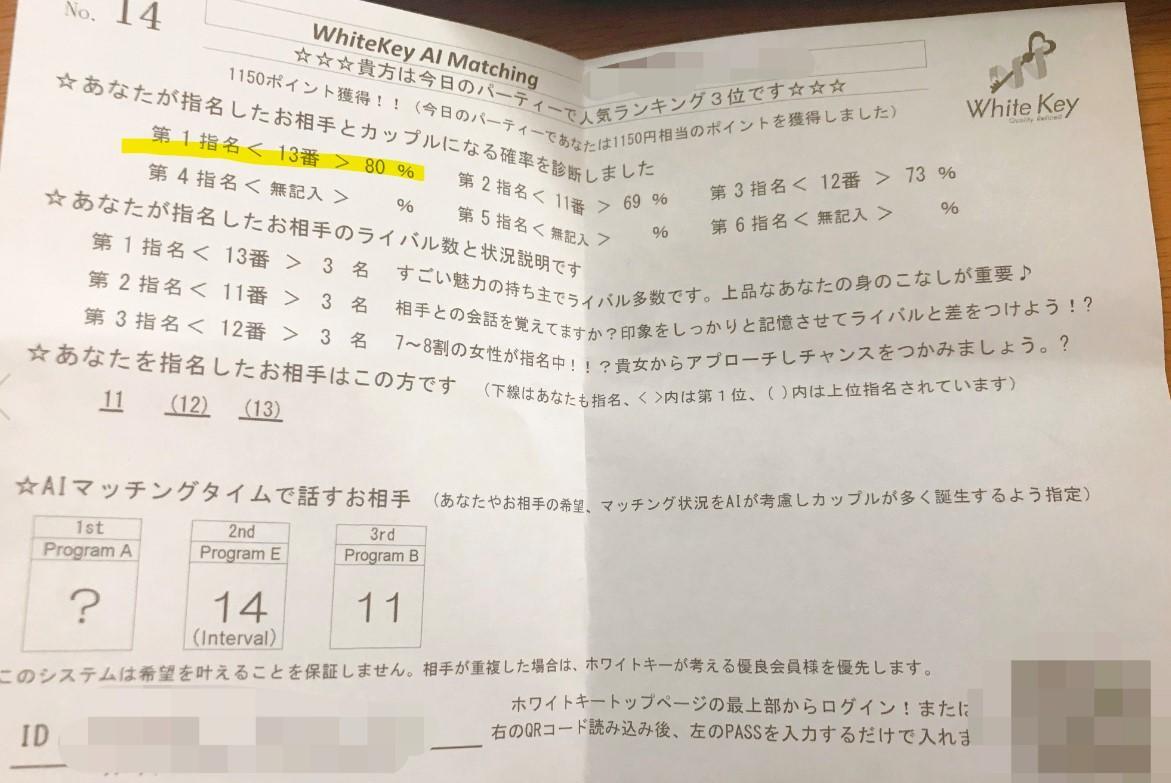 No. 14
WhiteKey AI Matching
White Key
Quality Refined
☆☆☆貴方は今日のパーティーで人気ランキング3位です☆☆☆
1150ポイント獲得!!(今日のパーティーであなたは1150円相当のポイントを獲得しました)
☆あなたが指名したお相手とカップルになる確率を診断しました
第1指名< 13番 > 80 % 第2指名< 11番 > 69 % 第3指名< 12番 > 73 %
第4指名< 無記入 > % 第5指名< 無記入 > % 第6指名< 無記入 > %
☆あなたが指名したお相手のライバル数と状況説明です
第1指名< 13番 > 3 名 すごい魅力の持ち主でライバル多数です。上品なあなたの身のこなしが重要♪
第2指名< 11番 > 3 名 相手との会話を覚えてますか?印象をしっかりと記憶させてライバルと差をつけよう!?
第3指名< 12番 > 3 名 7〜8割の女性が指名中!!?貴女からアプローチしチャンスをつかみましょう。?
☆あなたを指名したお相手はこの方です (下線はあなたも指名、< >内は第1位、( )内は上位指名されています)
11 (12) (13)
☆AIマッチングタイムで話すお相手 (あなたやお相手の希望、マッチング状況をAIが考慮しカップルが多く誕生するよう指定)
1st 2nd 3rd
Program A Program E Program B
? 14 11
(Interval)
このシステムは希望を叶えることを保証しません。相手が重複した場合は、ホワイトキーが考える優良会員様を優先します。
ホワイトキートップページの最上部からログイン!または
ID 右のQRコード読み込み後、左のPASSを入力するだけで入れま